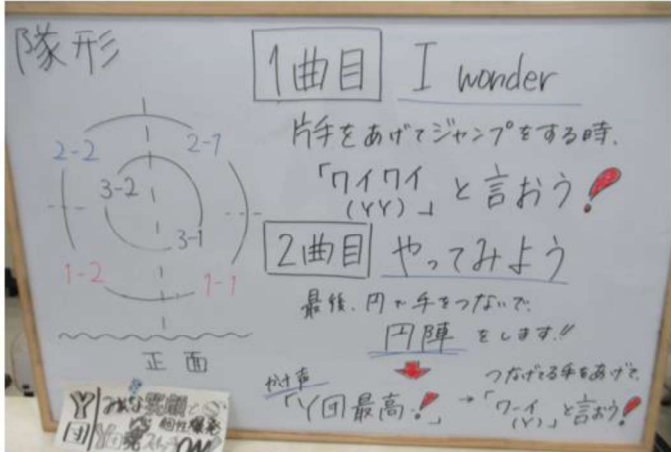 隊形
2-2
2-1
3-2
3-1
1-2
1-1
正面
1曲目 I wonder
片手をあげてジャンプをする時、
「ワイワイ
(YY)」と言おう!
2曲目 やってみよう
最後、円で手をつないで、
円陣をします!!
かけ声
「Y団最高!」
→ つなげてる手をあげて、
「ワーイ
(Y)」と言おう!
Y団
みんな笑顔で
個性爆発
ON!